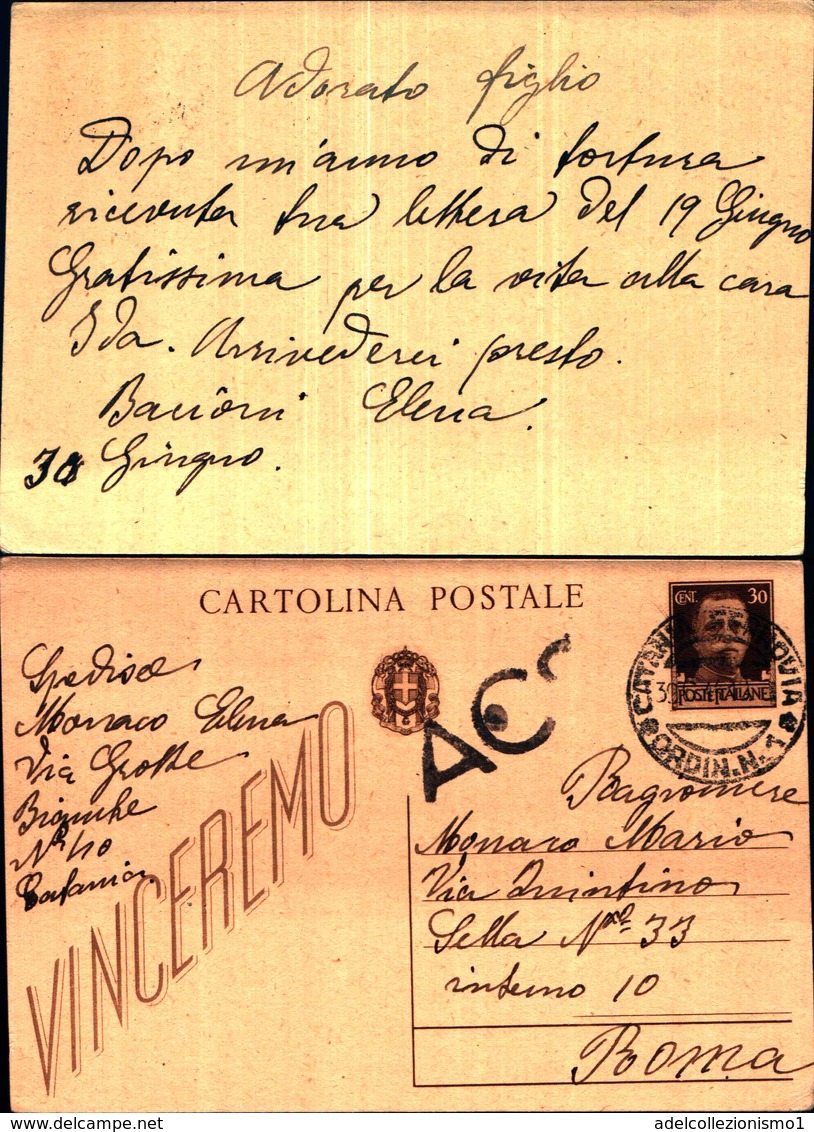 Adorato figlio
Dopo un'anno di tortura
ricevuta tua lettera del 19 Giugno
Gratissima per la vita alla cara
Ida. Arrivederci presto.
Bacioni Elena.
30 Giugno.
CARTOLINA POSTALE
CENT. 30
POSTE ITALIANE
ORDIN. N. 1
AC
Spedisce
Monaco Elena
Via Grotte
Bianche
No 110
Catania
VINCEREMO
Ragioniere
Monaco Mario
Via Quintino
Sella No 33
interno 10
Roma
adelcollezionismo1